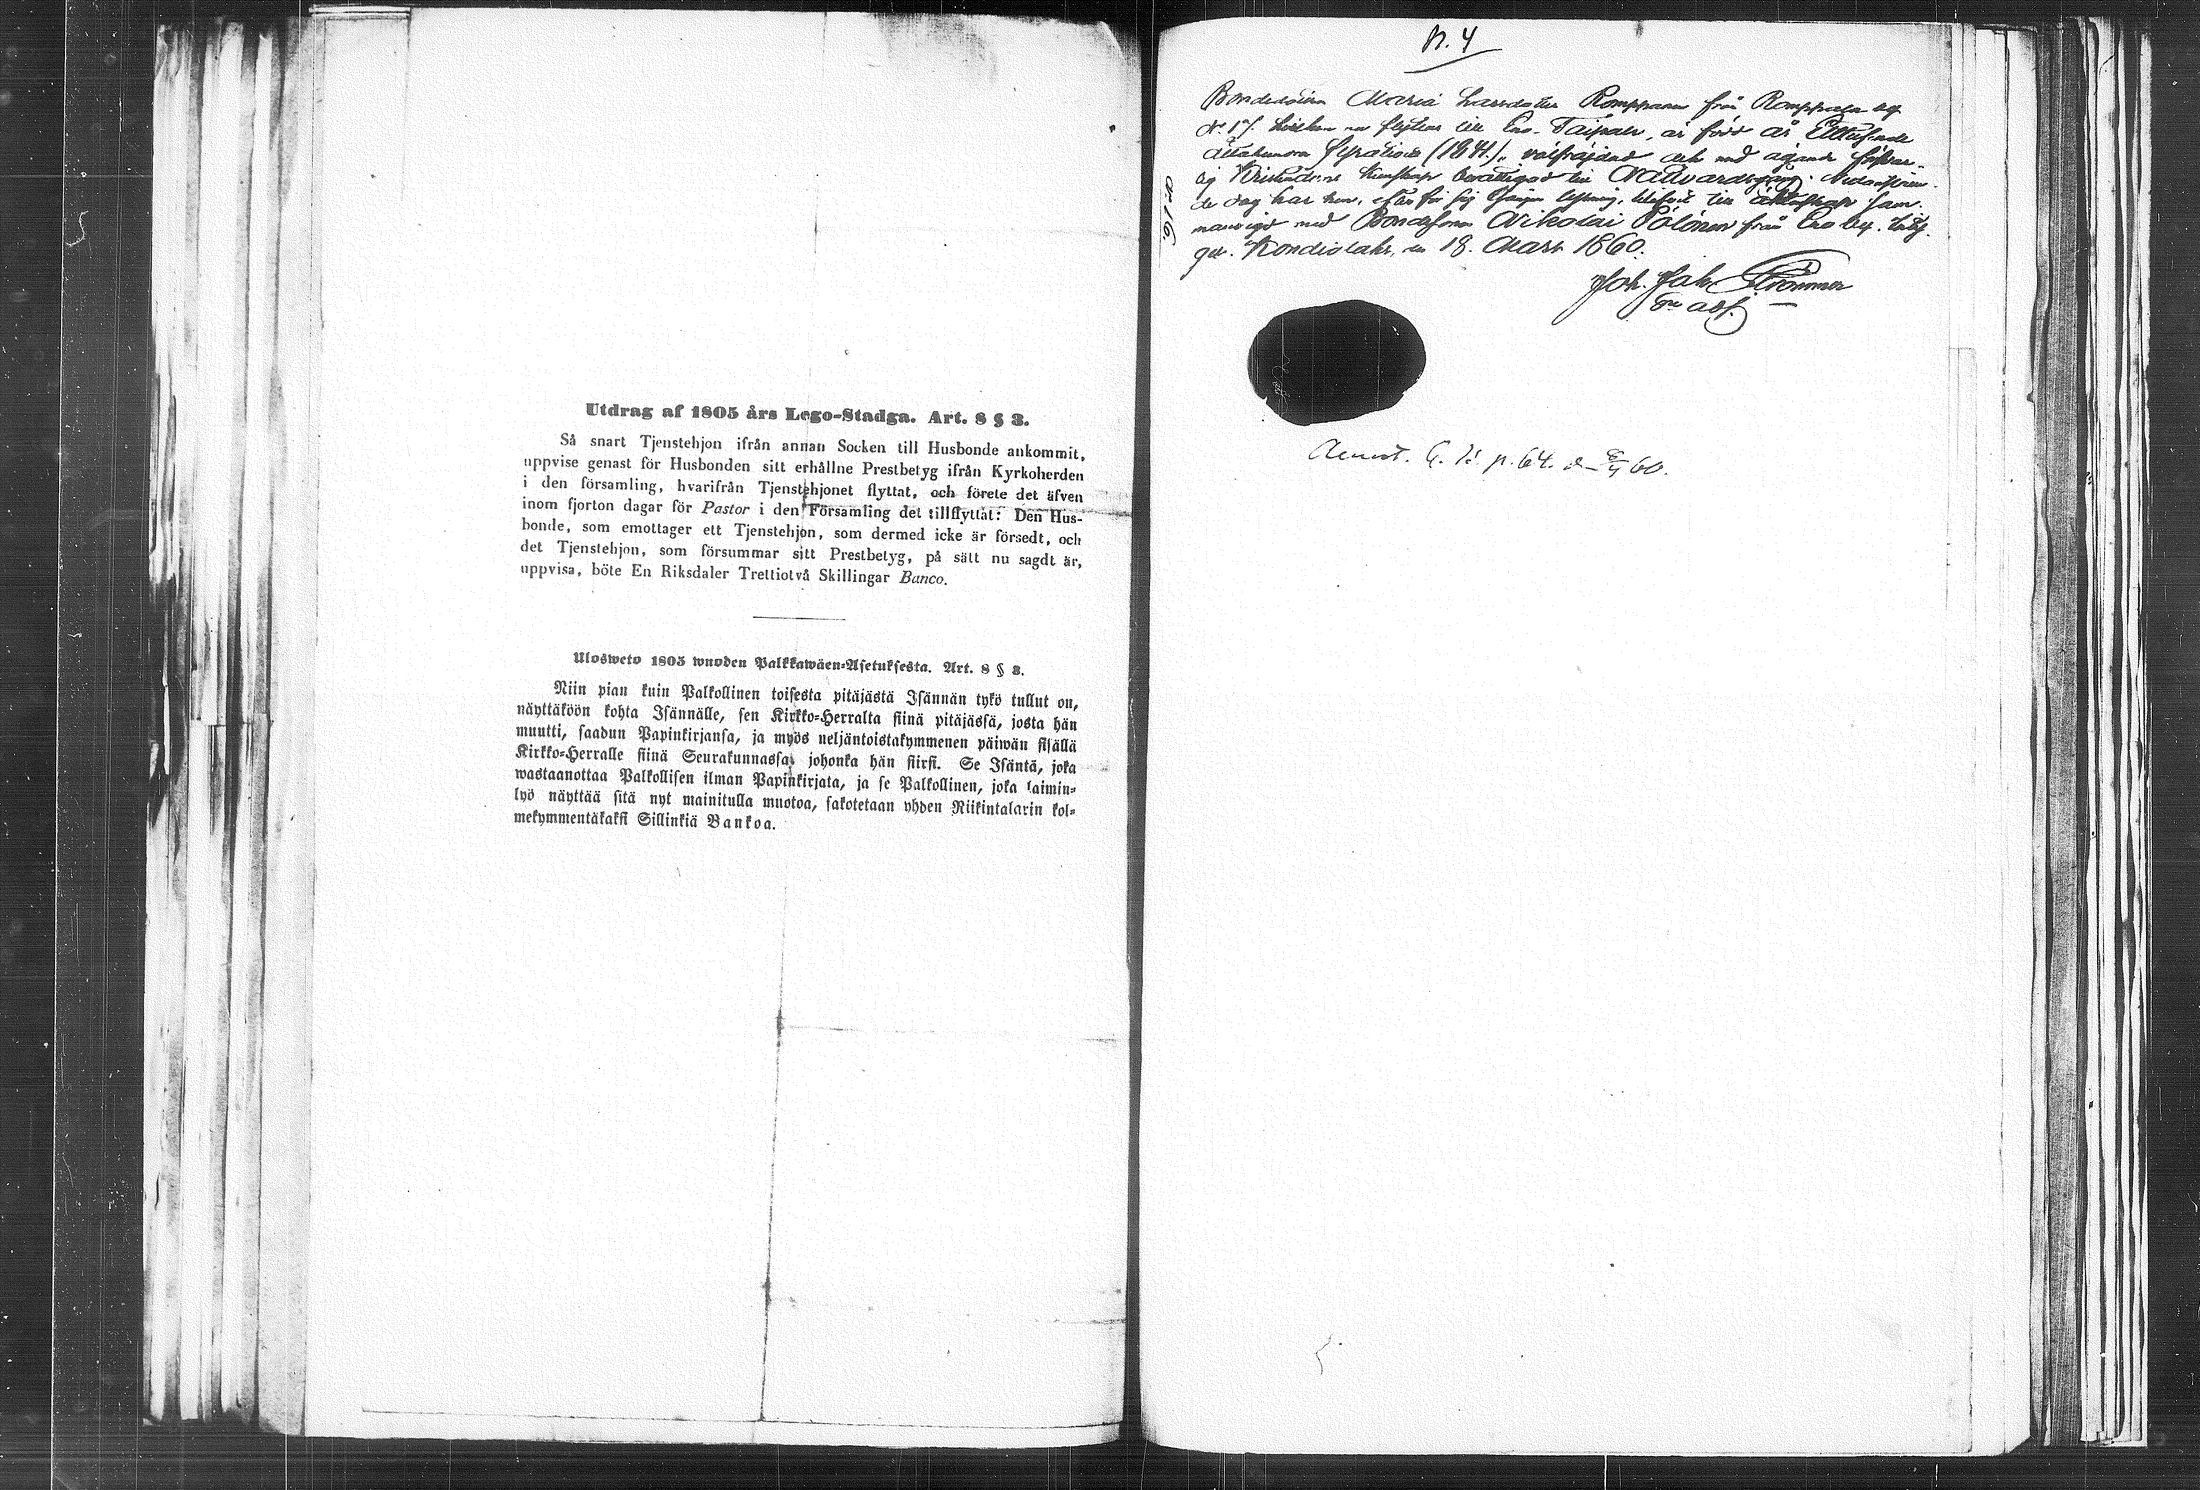 Utdrag af 1805 års Lego-Stadga. Art. 8 § 3.
Så snart Tjenstehjon ifrån annan Socken till Husbonde ankommit,
uppvise genast för Husbonden sitt erhållne Prestbetyg ifrån Kyrkoherden
i den församling, hvarifrån Tjenstehjonet flyttat, och förete det äfven
inom fjorton dagar för Pastor i den Församling det tillflyttat: Den Hus-
bonde, som emottager ett Tjenstehjon, som dermed icke är försedt, och
det Tjenstehjon, som försummar sitt Prestbetyg, på sätt nu sagdt är,
uppvisa, böte En Riksdaler Trettiotvå Skillingar Banco.
Ulosweto 1805 wuoden Palkkawäen-Asetuksesta. Art. 8 § 3.
Niin pian kuin Palkollinen toisesta pitäjästä Isännän tykö tullut on,
näyttäköön kohta Isännälle, sen Kirkko-Herralta siinä pitäjässä, josta hän
muutti, saadun Papinkirjansa, ja myös neljäntoistakymmenen päiwän sisällä
Kirkko-Herralle siinä Seurakunnassa, johonka hän siirsi. Se Isäntä, joka
wastaanottaa Palkollisen ilman Papinkirjata, ja se Palkollinen, joka laimin-
lyö näyttää sitä nyt mainitulla muotoa, sakotetaan yhden Riikintalarin kol-
mekymmentäkaksi Sillinkiä Bankoa.
N. 4
Bondedottren Maria Larsdotter Romppanen från Romppala by
N° 17. hvilken nu flyttar till Eno-Taipale, är född år Ettusende
åttahundra fyratioett (1841.), välfräjdad och med ägande försvar-
lig Kristendoms kunskap berättigad till Nattvardsgång. Nedanskrifne
dag har hon, efter för sig lysning, blifvit till äktenskap sam-
manvigd med Bondesonen Nikolai Pölönen från Eno by.
Kondiolaks, den 18. Mars 1860.
Joh. Jak. Strömmer
N° 16.
p. 64. 60.